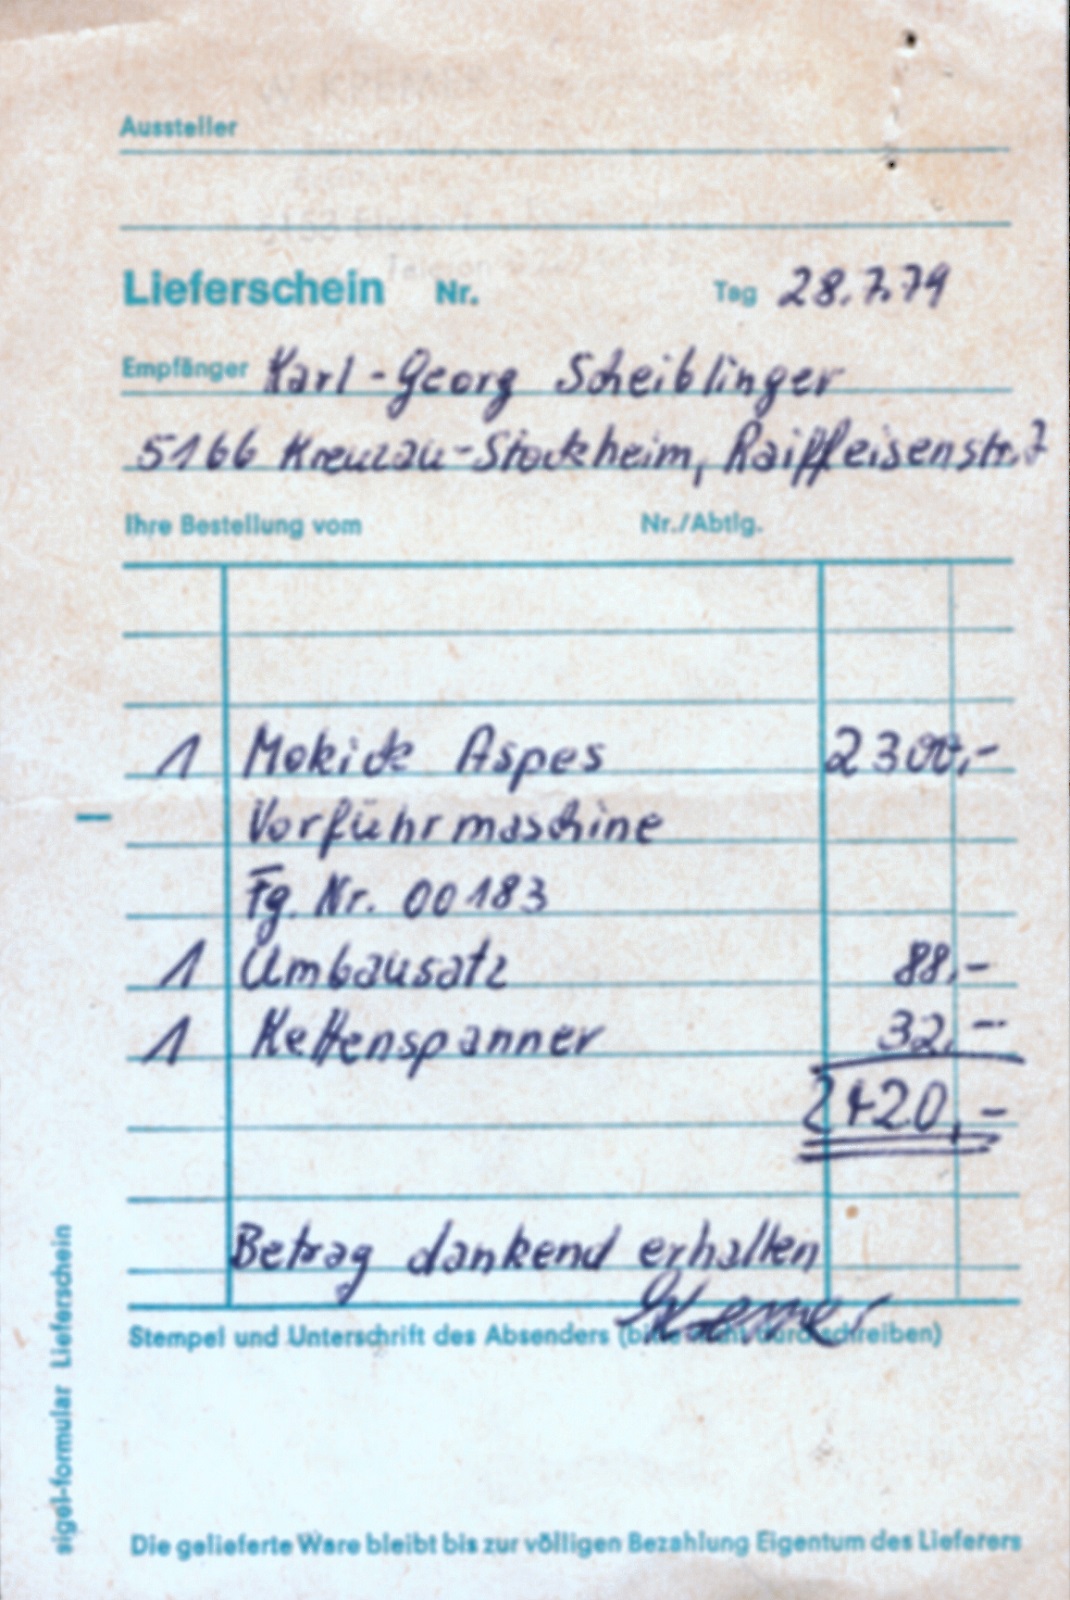 Aussteller
Lieferschein Nr. Tag 28.7.79
Empfänger Karl-Georg Scheiblinger
5166 Kreuzau-Stockheim, Raiffeisenstr. 7
Ihre Bestellung vom Nr./Abtlg.
1 Mokick Aspes 2300,-
Vorführmaschine
Fg. Nr. 00183
1 Umbausatz 88,-
1 Kettenspanner 32,-
2420,-
Betrag dankend erhalten
Stempel und Unterschrift des Absenders (bitte nicht durchschreiben)
sigel-formular Lieferschein
Die gelieferte Ware bleibt bis zur völligen Bezahlung Eigentum des Lieferers